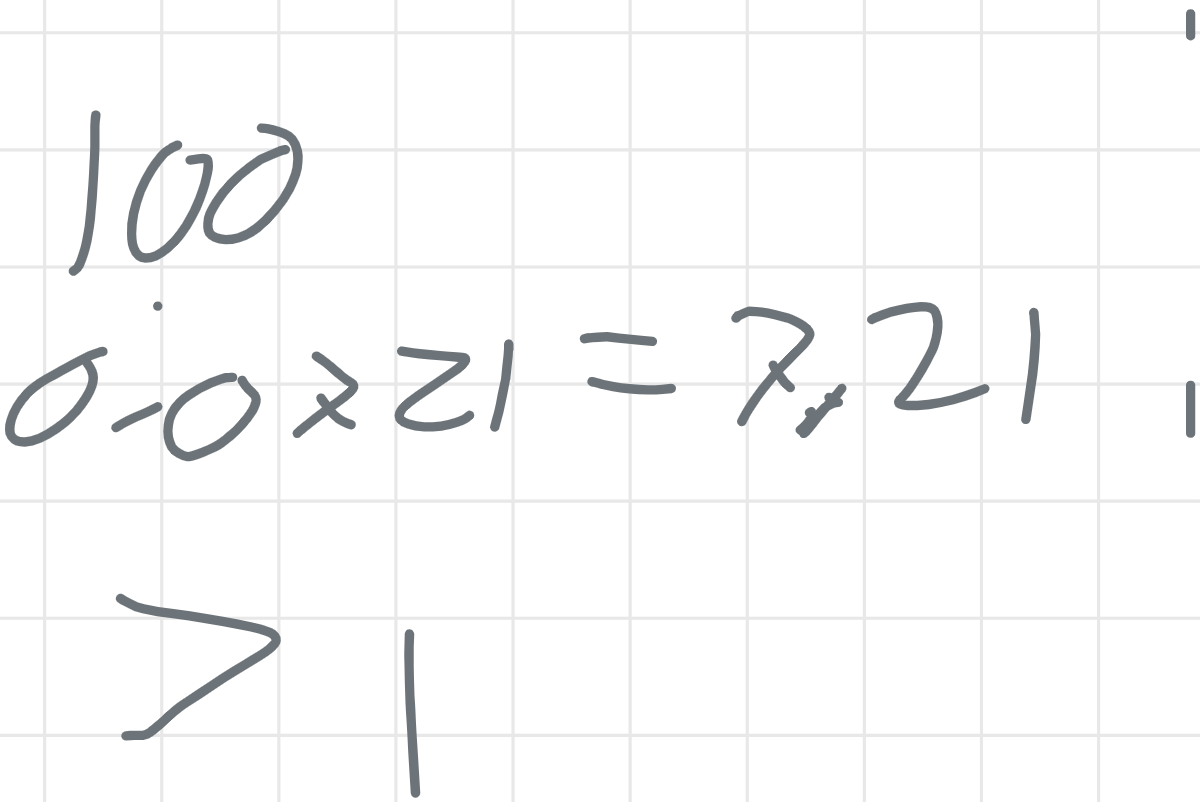 100
0.0721 = 7.21
> 1